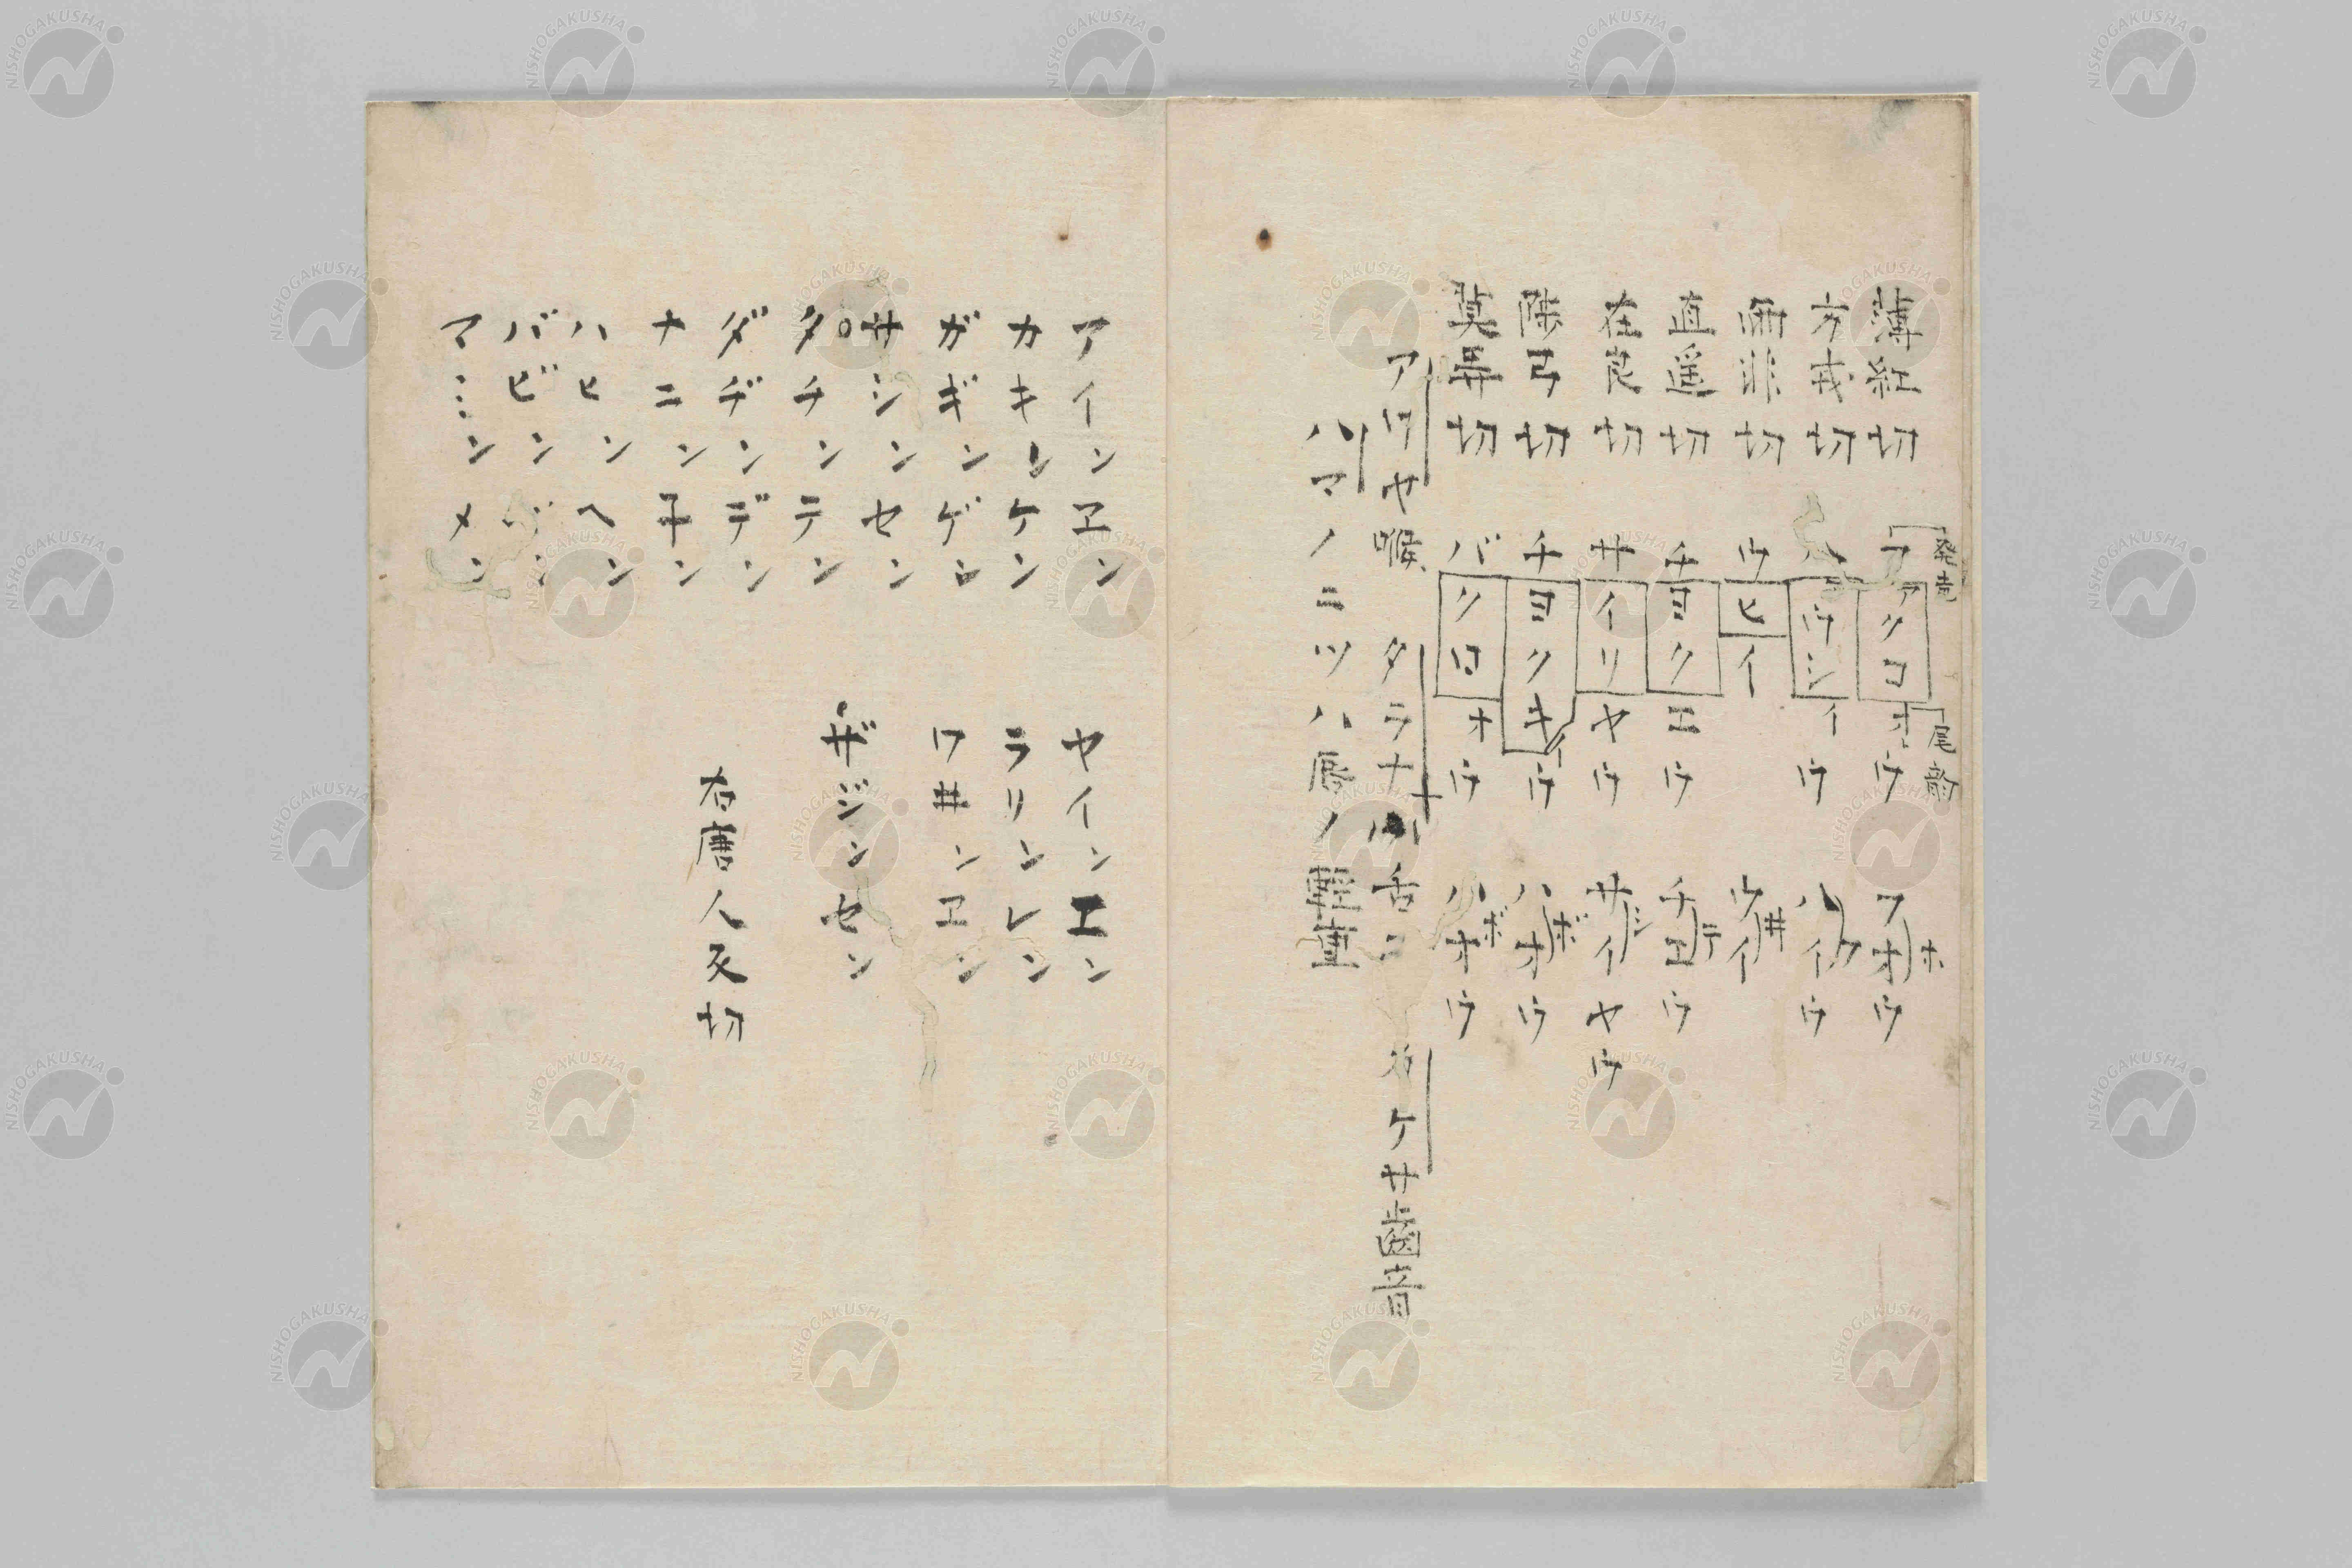 薄紅切 ファクコオウ フオウ ホ
発声 尾韵
方戎切 ハウシイウ ハイウ フ
雨非切 ウヒイ ウイ 井
直遥切 チヨクエウ チヱウ テ
在良切 サイリヤウ サイヤウ シ
陟弓切 チヨクキウ イ ハオウ ボ
莫弄切 バクロオウ ハオウ ボ
アワヤ喉、タラナ 舌ニ カケサ齒音
ハマノニツハ唇ノ軽重
アインヱン ヤインエン
カキンケン ラリンレン
ガギンゲン ワ井ンヱン
サシンセン ザジンセン
タチンテン
ダヂンデン 右唐人反切
ナニン子ン
ハヒンヘン
バビン
マ…ンメン
NISHOGAKUSHA